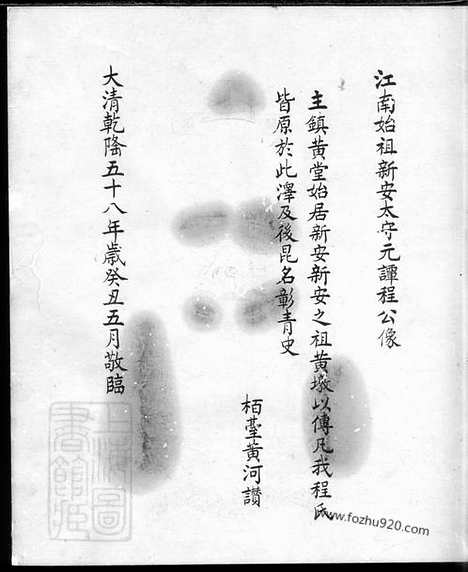 江南始祖新安太守元譚程公像
主鎮黄堂始居新安新安之祖黄墩以傳凡我程氏
皆原於此澤及後昆名彰青史
栢臺黄河讃
大清乾隆五十八年歲癸丑五月敬臨
上海圖書館藏
www.fozhu920.com